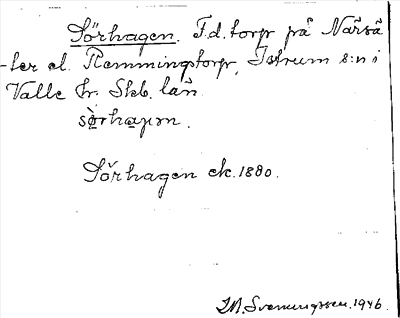 Sörhagen. F.d. torp på Närsä
-ter el. Remmingstorp, Istrum s:n i
Valle hr. Skb. län
sö̀rhaɡ̣ɐn.
Sörhagen ek. 1880.
I.M. Svenungsson. 1946.